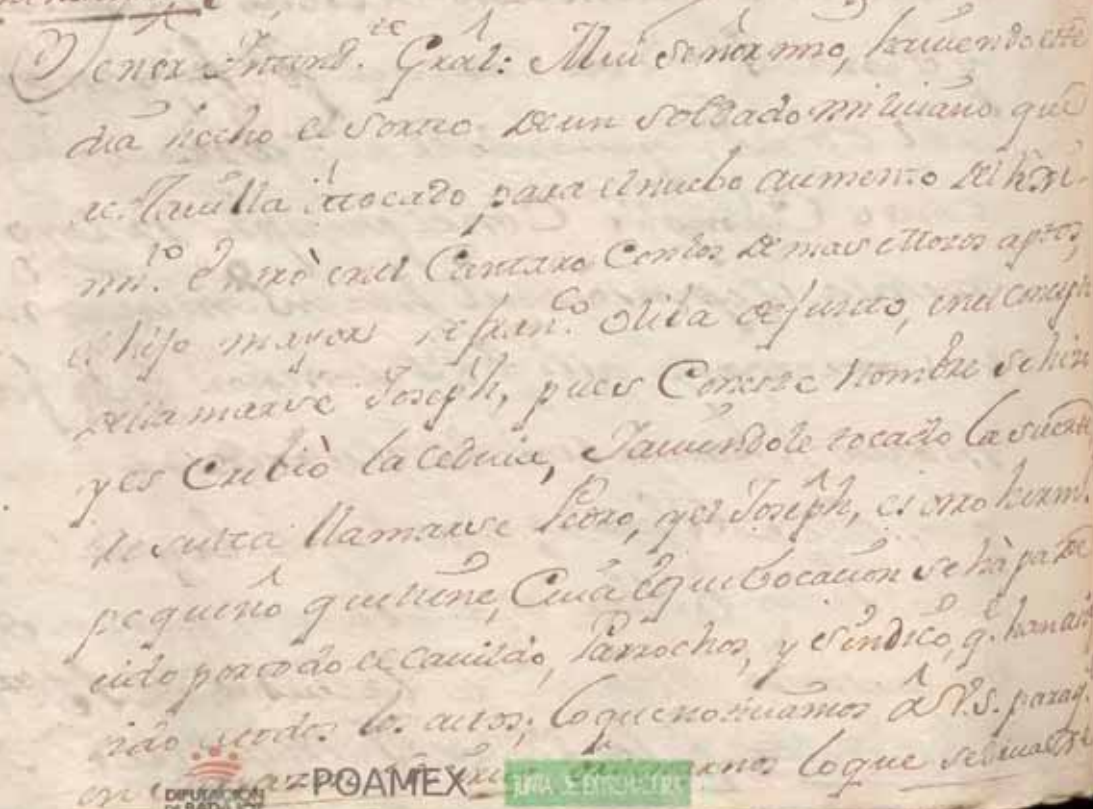 Señor Intend.te Gràl: Mui señor mio, haviendo este
dia hecho el sorteo de un soldado miliciano que
a esta villa à tocado para el nuebo aumento del
entrò en el Cantaro Con los demas Mozos aptos,
el hijo mayor de fran.co Oliba defunto, en el concepto
de llamarse Joseph, pues Con este Nombre se hizo
y es Cribiò la cedula, Javiendole tocado la suerte
resulta llamarse Pedro, y el Joseph, es otro herm.
pequeño que tiene, Cuia equibocacion se hà pade
cido por todo el Cavildo, Parrochos, y Sindico, q.e han asis
tido a todos los autos; lo que noticiamos à V.S. para q.
en lo que se
DIPUTACIÓN DE BADAJOZ POAMEX JUNTA DE EXTREMADURA